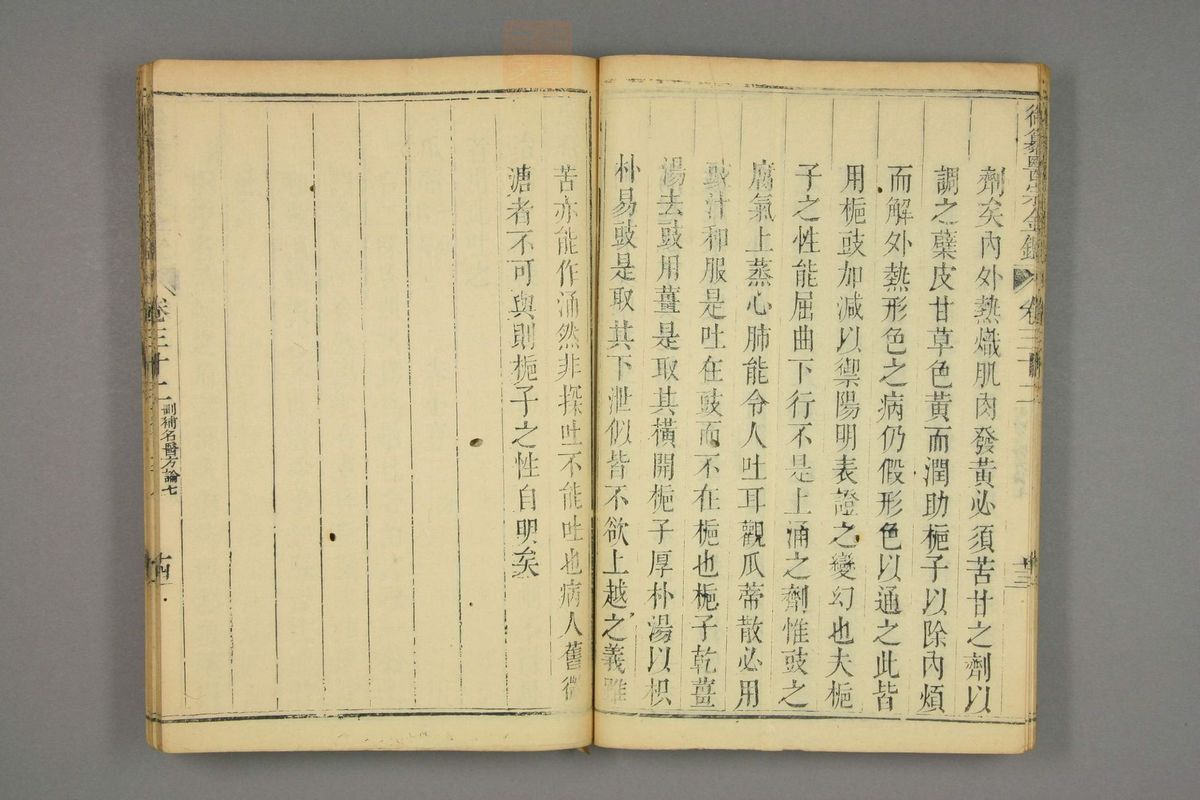 御纂醫宗金鑑 卷三十二 十三
劑矣內外熱熾肌肉發黃必須苦甘之劑以
調之蘗皮甘草色黃而潤助梔子以除內煩
而解外熱形色之病仍假形色以通之此皆
用梔豉加減以禦陽明表證之變幻也夫梔
子之性能屈曲下行不是上涌之劑惟豉之
腐氣上蒸心肺能令人吐耳觀瓜蒂散必用
豉汁和服是吐在豉而不在梔也梔子乾薑
湯去豉用薑是取其橫開梔子厚朴湯以枳
朴易豉是取其下泄似皆不欲上越之義雖
苦亦能作涌然非探吐不能吐也病人舊微
溏者不可與則梔子之性自明矣
卷三十二 刪補名醫方論七 十四